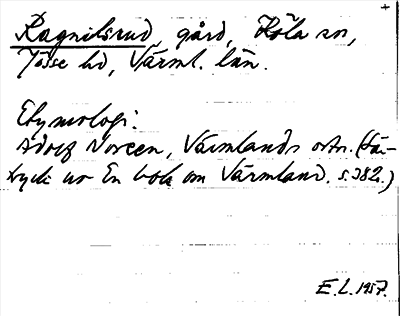 +
Ragnilsrud, gård, Köla sn,
Jösse hd, Värml. län.
Etymologi:
Adolf Noreen, Värmlands ortn. (Sär-
tryck ur En bok om Värmland. s. 382.)
E. L. 1957.